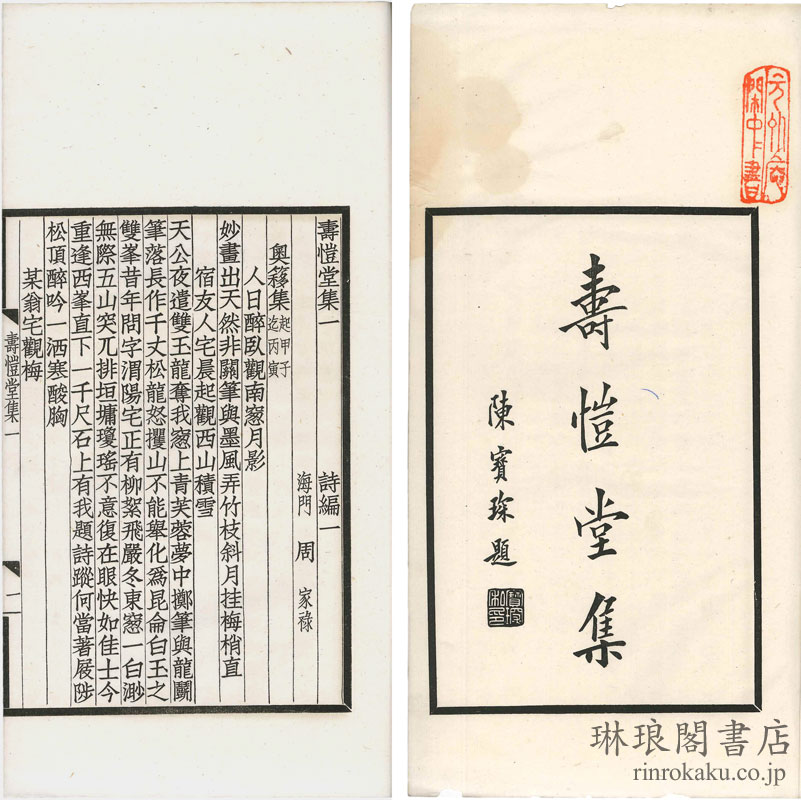 壽愷堂集
陳寶琛題
壽愷堂集一　詩編一
海門　周　家祿
奧簃集起甲子迄丙寅
人日醉臥觀南窓月影
妙畫出天然非關筆與墨風弄竹枝斜月挂梅梢直
宿友人宅晨起觀西山積雪
天公夜遣雙玉龍奪我窓上青芙蓉夢中擲筆與龍鬬
筆落長作千丈松龍怒攫山不能舉化爲昆侖白玉之
雙峯昔年問字渭陽宅正有柳絮飛嚴冬東窓一白渺
無際五山突兀排垣墉瓊瑤不意復在眼快如佳士今
重逢西峯直下一千尺石上有我題詩蹤何當著屐陟
松頂醉吟一洒寒酸胸
某翁宅觀梅
壽愷堂集一
一
琳琅閣書店
rinrokaku.co.jp